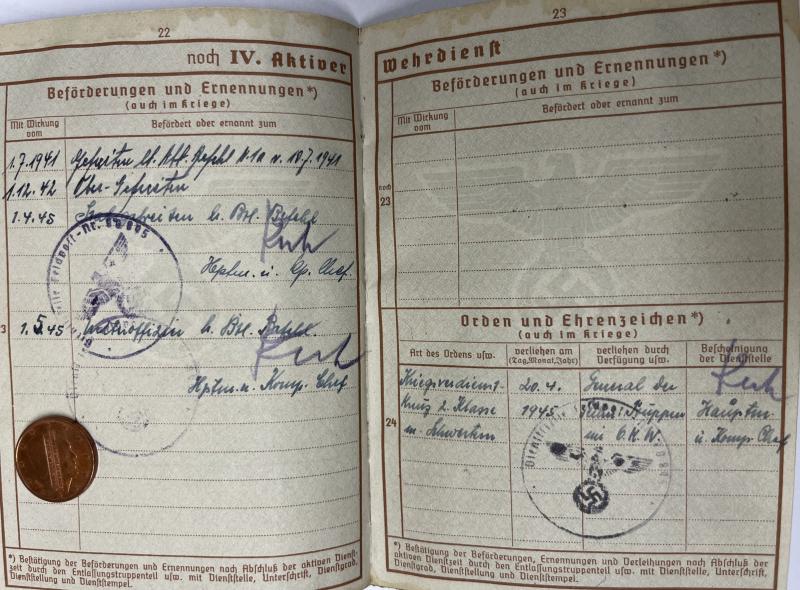 22
noch IV. Aktiver
Beförderungen und Ernennungen*)
(auch im Kriege)
Mit Wirkung vom
Befördert oder ernannt zum
1.7.1941 Gefreiten lt. Btl. Befehl N.1a v. 10.7.1941
1.12.42 Ober-Gefreiten
1.4.45 Stabsgefreiten lt. Btl. Befehl
Hptm. u. Kp. Chef
1.5.45 Unteroffizier lt. Btl. Befehl
Hptm. u. Komp. Chef
*) Bestätigung der Beförderungen und Ernennungen nach Abschluß der aktiven Dienst-
zeit durch den Entlassungstruppenteil usw. mit Dienststelle, Unterschrift, Dienstgrad,
Dienststellung und Dienststempel.
23
Wehrdienst
Beförderungen und Ernennungen*)
(auch im Kriege)
Mit Wirkung vom
Befördert oder ernannt zum
noch
23
Orden und Ehrenzeichen*)
(auch im Kriege)
Art des Ordens usw.
verliehen am
(Tag, Monat, Jahr)
verliehen durch
Verfügung usw.
Bescheinigung
der Dienststelle
24
Kriegsverdienst
Kreuz 2. Klasse
m. Schwertern
20.4.
1945
General der
Truppen
im O.K.W.
Hauptm.
u. Komp. Chef
*) Bestätigung der Beförderungen, Ernennungen und Verleihungen nach Abschluß der
aktiven Dienstzeit durch den Entlassungstruppenteil usw. mit Dienststelle, Unterschrift, Dienst-
grad, Dienststellung und Dienststempel.